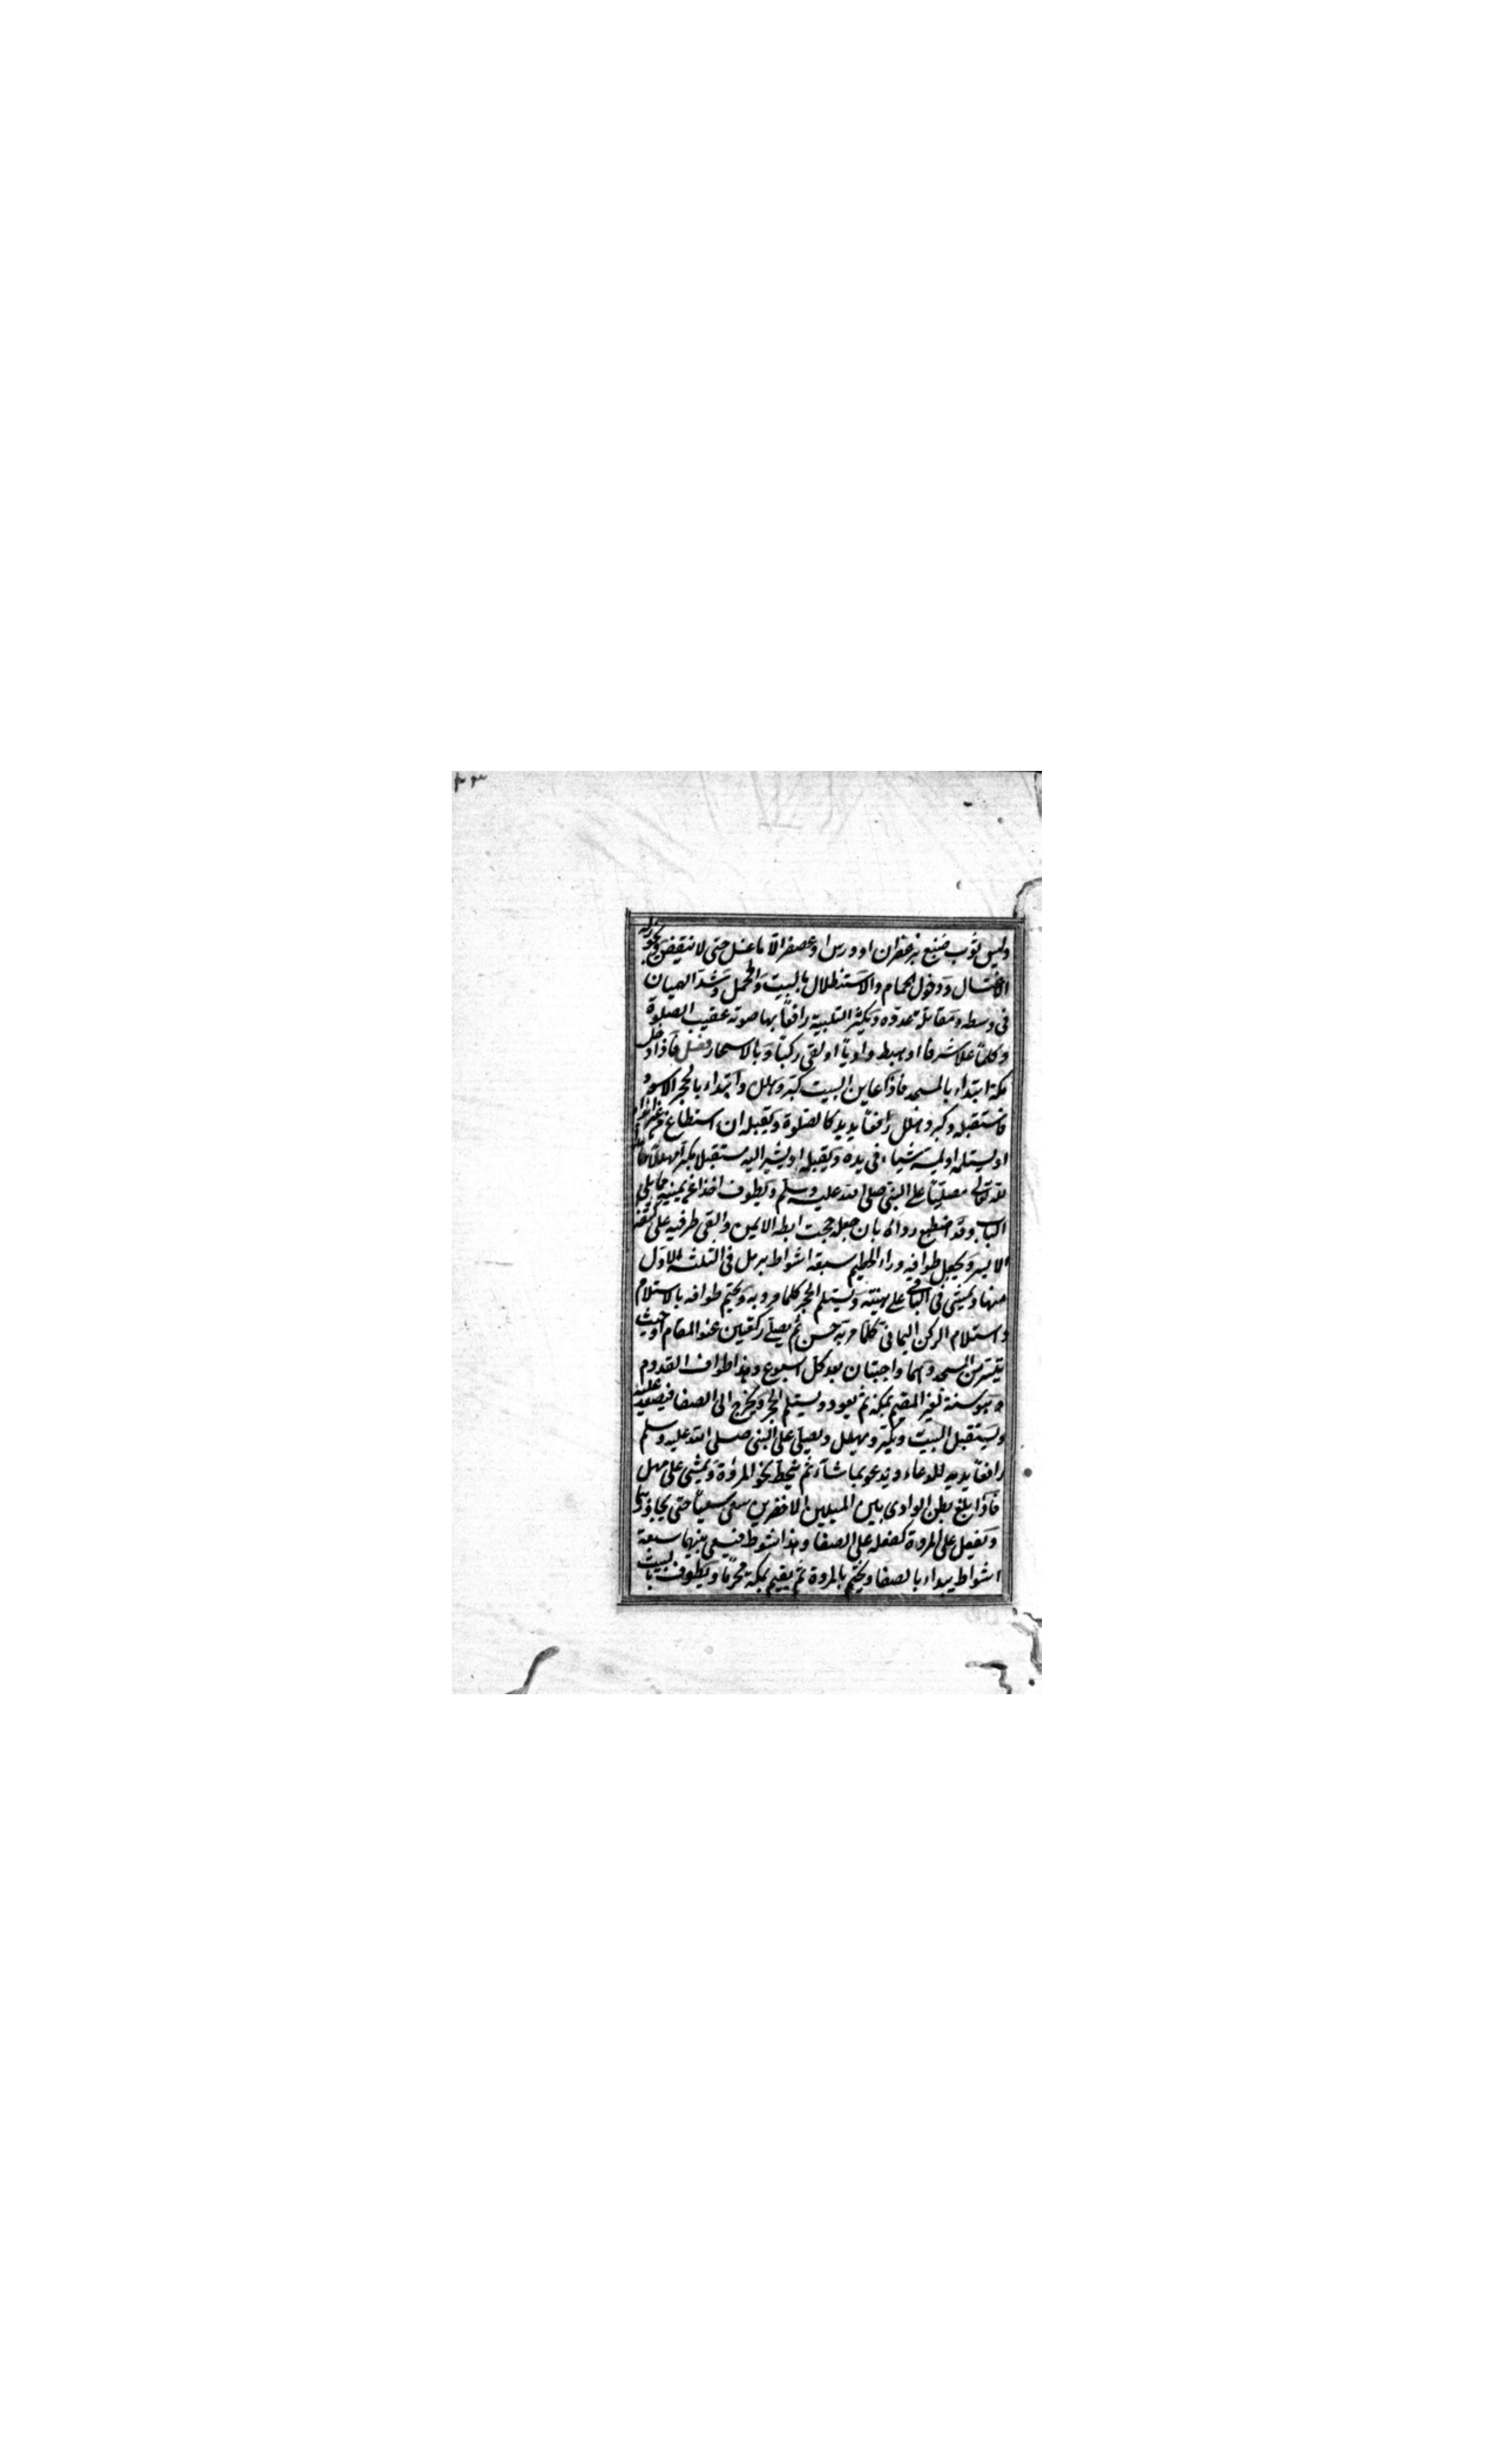 ٤٣
ولبس ثوب صبغ بزعفران او ورس او عصفر الا ما غسل حتى لا ينقض ويجوز له
الاغتسال ودخول الحمام والاستظلال بالبيت والمحمل وشد الهميان
فى وسطه ومقاتلة عدوه ويكثر التلبية رافعاً بها صوته عقيب الصلوة
وكلما علا شرفا او هبط وادياً او لقى ركباً وبالاسحار فصل فاذا دخل
مكة ابتداء بالمسجد فاذا عاين البيت كبر وهلل وابتداء بالحجر الاسود
فاستقبله وكبر وهلل رافعاً يديه كالصلوة ويقبله ان استطاع
او يستلمه او يمسه شياء فى يده ويقبله او يشير اليه مستقبلا مكبراً مهللاً حامداً
لله تعالى مصلياً على النبى صلى الله عليه وسلم ويطوف اخذا عن يمينه مما يلى
الباب وقد اضطبع رداه بان جعله تحت ابطه الايمن والقى طرفيه على كتفه
الايسر ويجعل طوافه وراء الحطيم سبعة اشواط يرمل فى الثلثة الاول
منها ويمشى فى الباقى على هينته ويستلم الحجر كلما مر به ويختم طوافه بالاستلام
واستلام الركن اليمانى كلما مر به حسن ثم يصلى ركعتين عند المقام او حيث
تيسر من المسجد وهما واجبتان بعد كل اسبوع وهذا طواف القدوم
وهو سنة لغير المقيم بمكة ثم يعود ويستلم الحجر ويخرج الى الصفا فيصعد عليه
ويستقبل البيت ويكبر ويهلل ويصلى على النبى صلى الله عليه وسلم
رافعاً يديه للدعاء ويدعو بما شاء ثم ينحط نحو المروة ويمشى على مهل
فاذا بلغ بطن الوادى بين الميلين الاخضرين سعى سعياً حتى يجاوزهما
ويفعل على المروة كفعله على الصفا وهذا شوط فيسعى بينهما سبعة
اشواط يبداء بالصفا ويختم بالمروة ثم يقيم بمكة محرماً ويطوف بالبيت